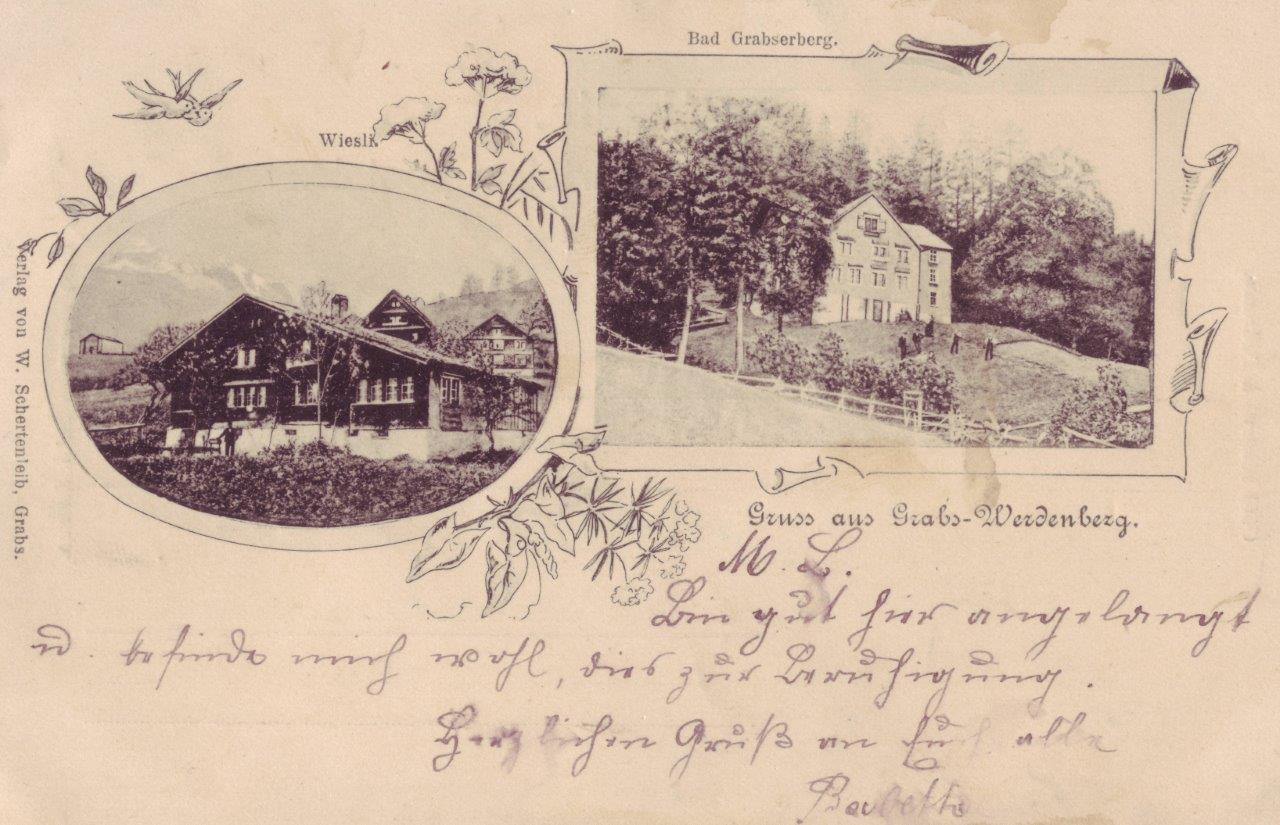 Bad Grabserberg.
Wiesli
Verlag von W. Schertenleib, Grabs.
Gruss aus Grabs-Werdenberg.
M. L.
Bin gut hier angelangt
u. befinde mich wohl, dies zur Beruhigung.
Herzlichen Gruß an Euch alle
Babette